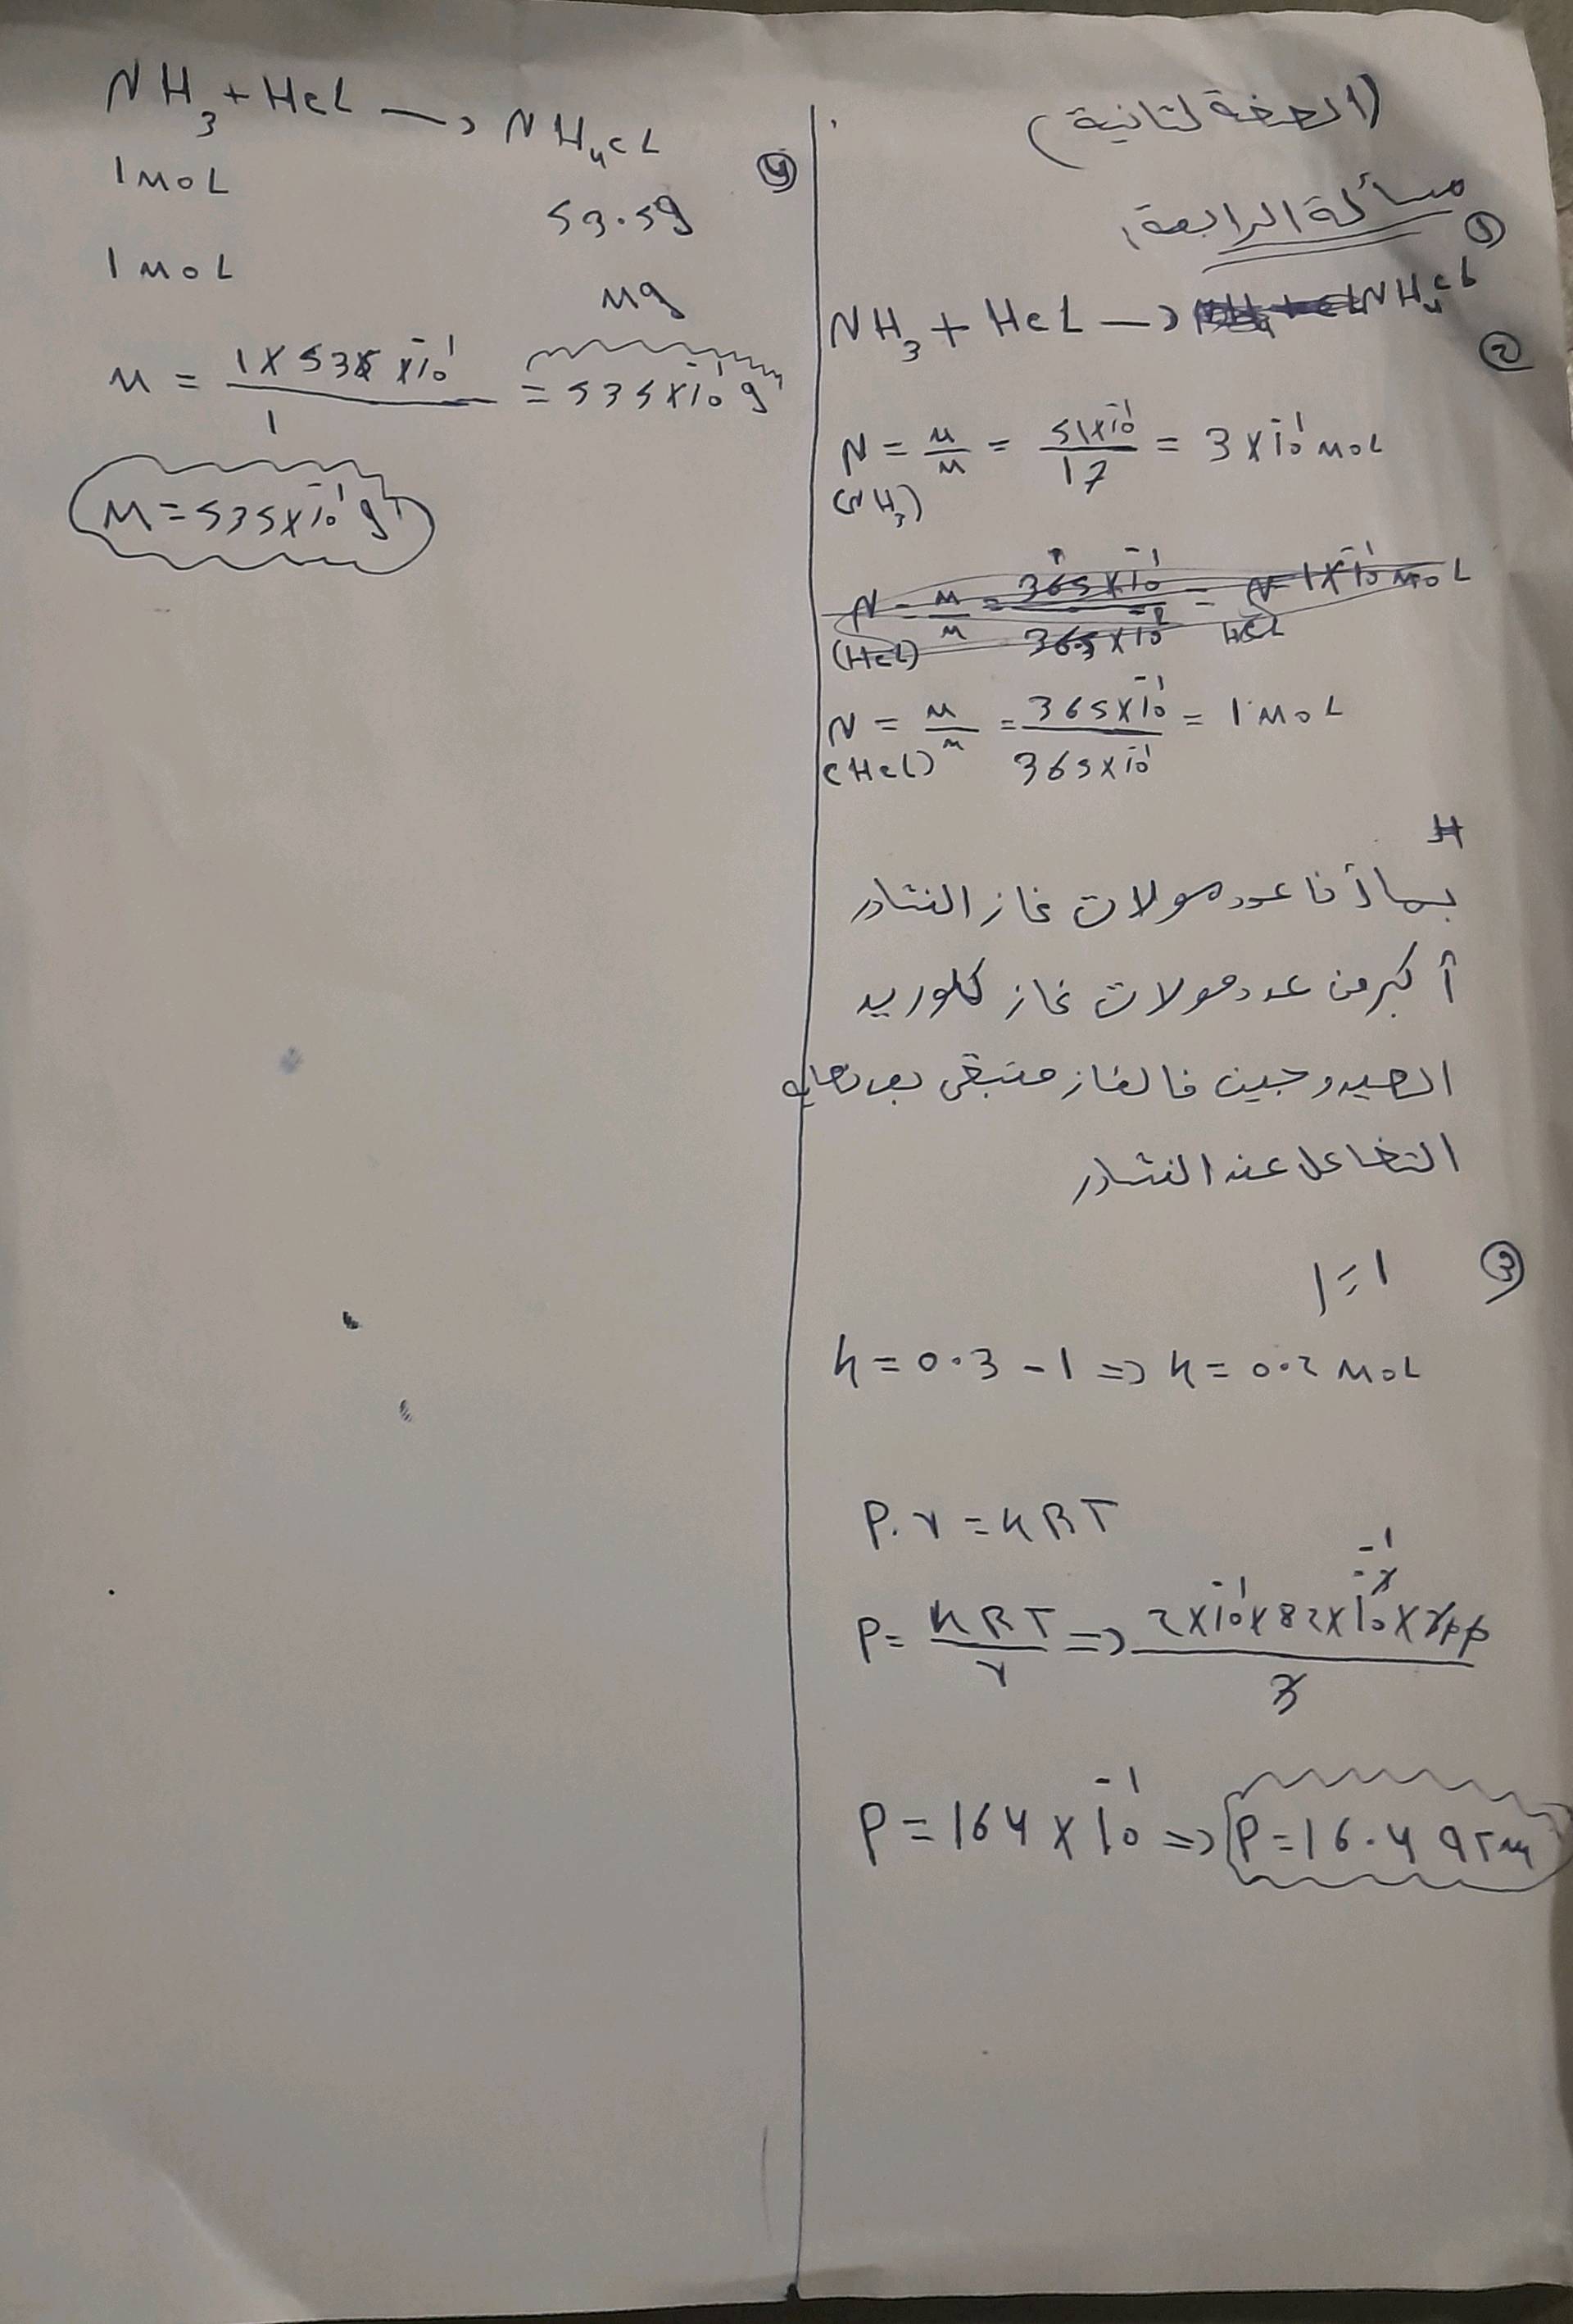 (الصفحة لثانية)
مسألة الرابعة:
①
NH₃ + HCL → NH₄CL
②
N = m/M = 51×10⁻¹/17 = 3×10⁻¹ MOL
(NH₃)
N = m/M = 365×10⁻¹/365×10⁻² = N = 1×10⁻¹ MOL
(HCL) HCL
N = m/M = 365×10⁻¹/365×10⁻¹ = 1 MOL
(HCL)
H
بما أنا عدد مولات غاز النشادر
أكبر من عدد مولات غاز كلوريد
الهيدروجين فالغاز متبقي بعد نهاية
التفاعل عند النشادر
③
n = 0.3 - 1 => n = 0.2 MOL
P.V = nRT
P = nRT/V => 2×10⁻¹×82×10⁻¹×300/3
P = 164×10⁻¹ => P = 16.4 aTm
④
NH₃ + HCL → NH₄CL
1 MOL 53.5g
1 MOL mg
m = 1×535×10⁻¹/1 = 535×10⁻¹ g
M = 535×10⁻¹ g